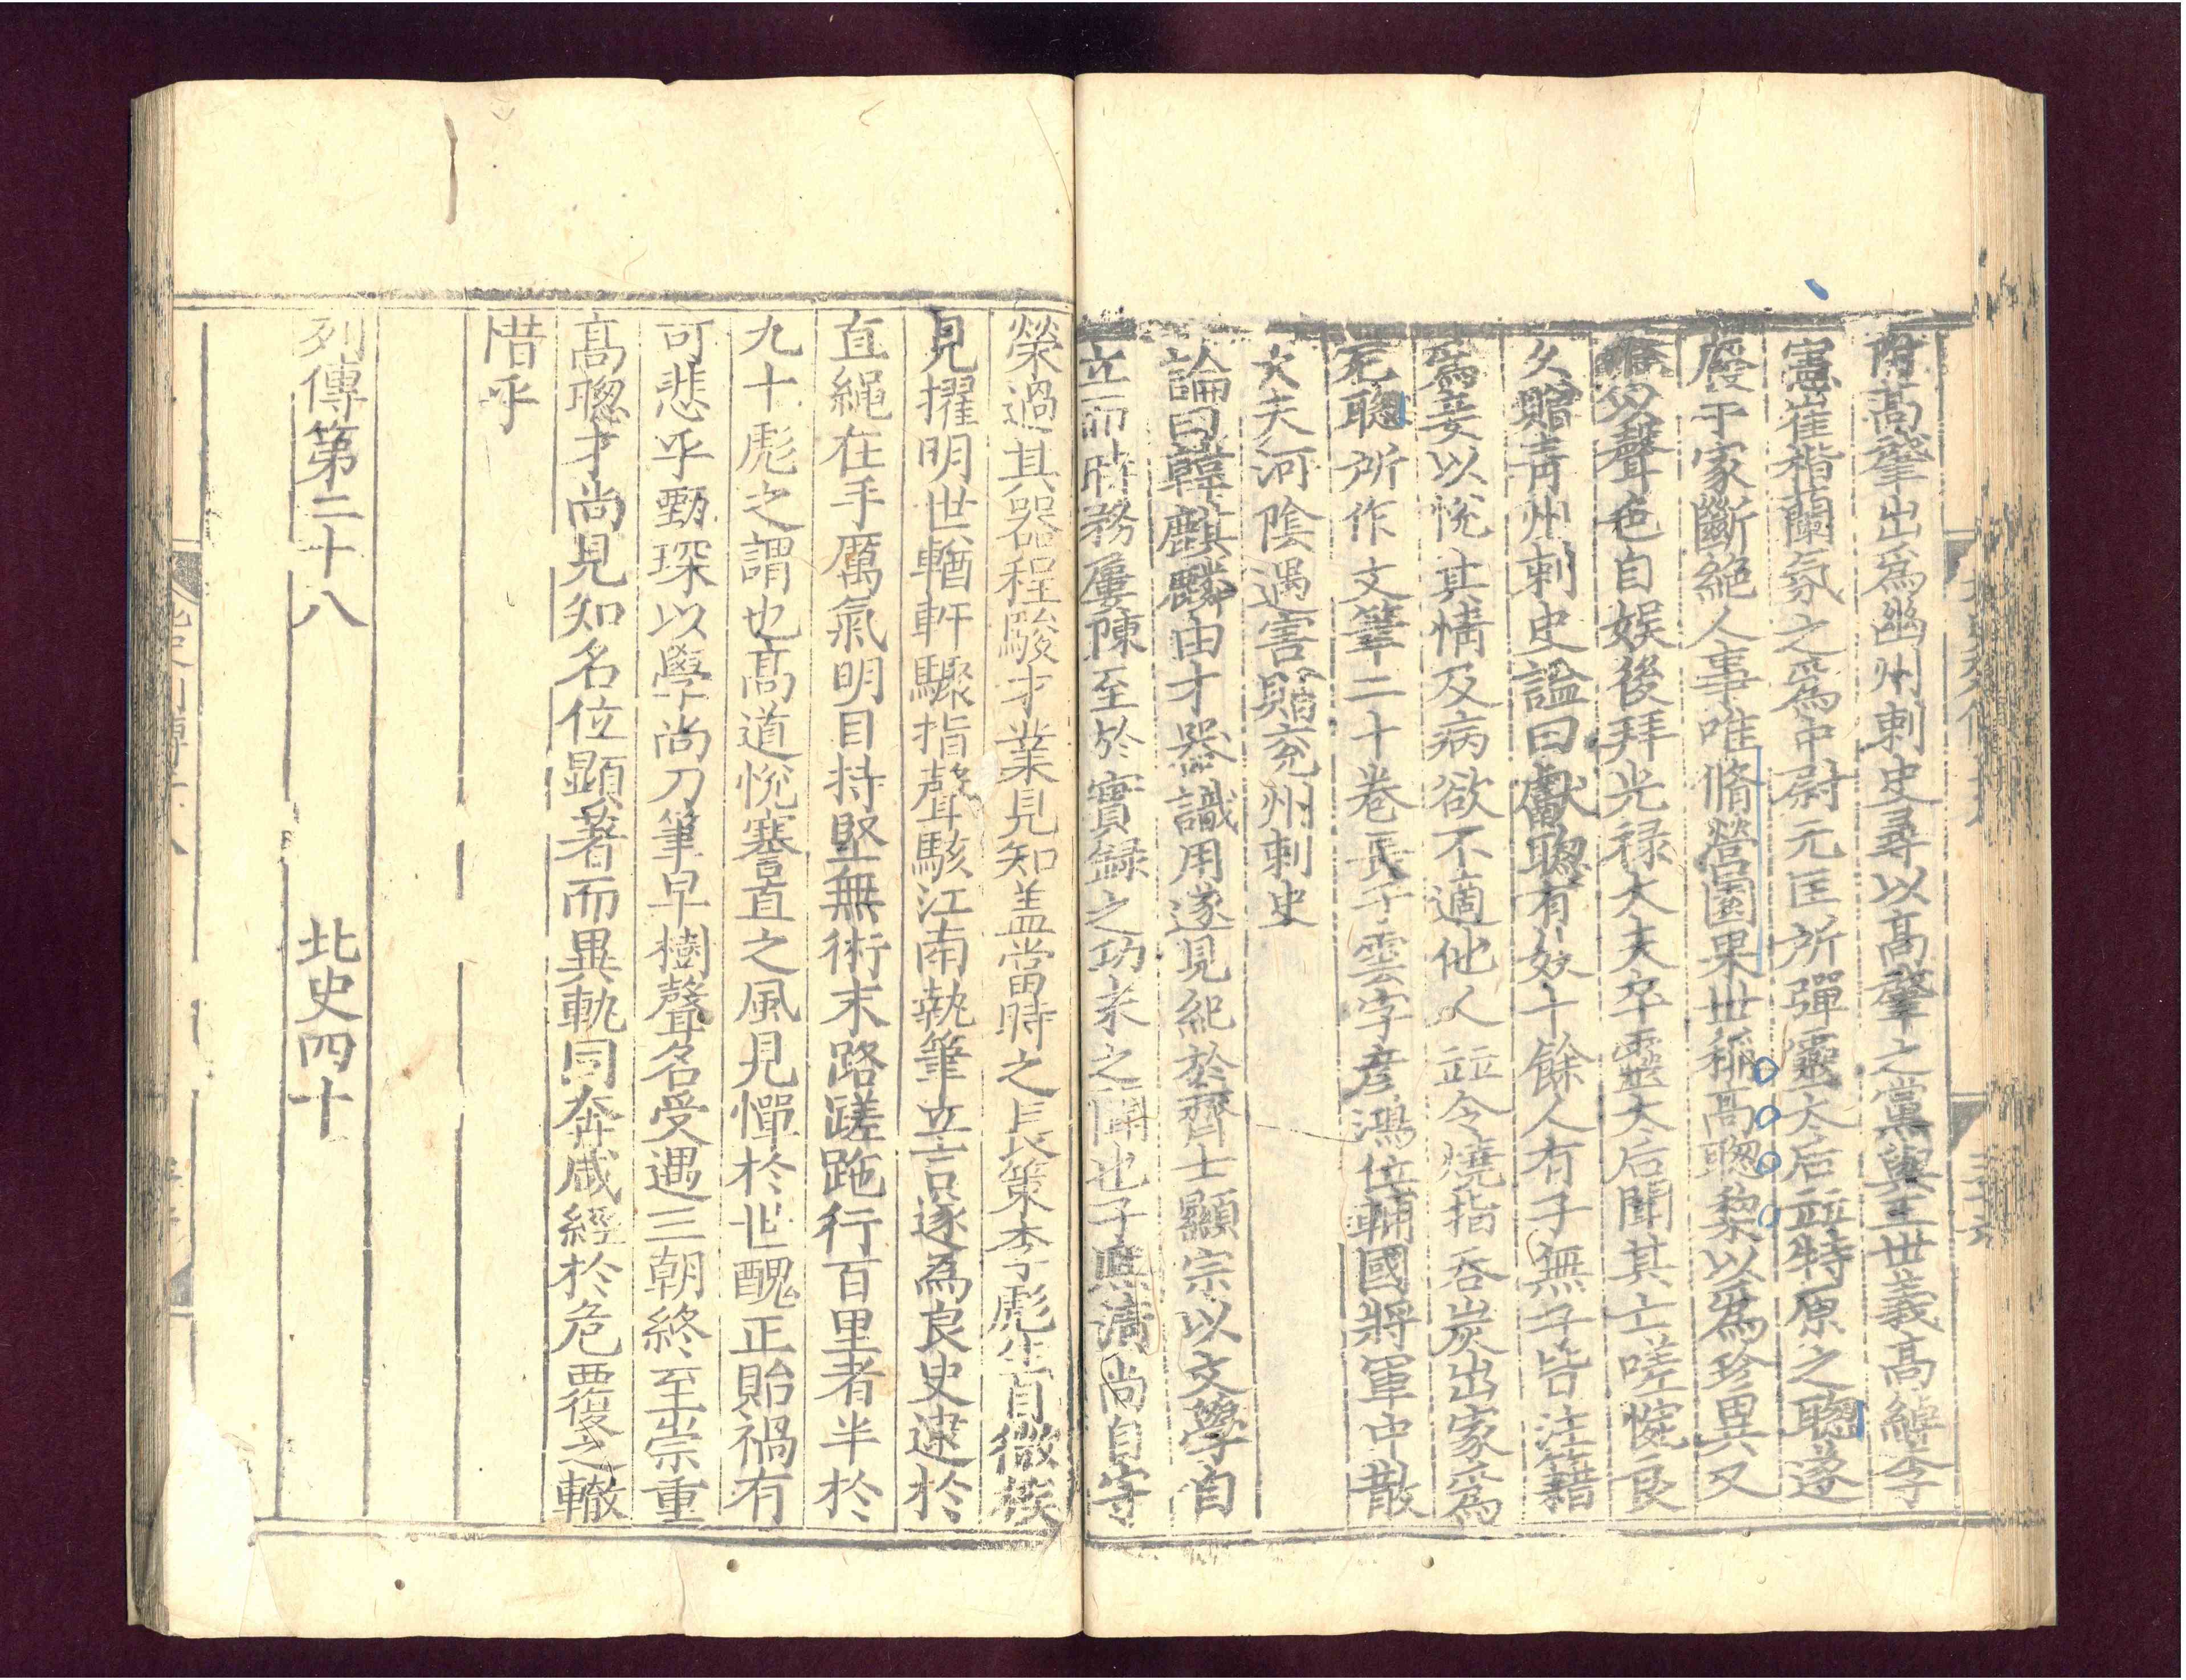 附高肇出爲幽州刺史尋以高肇之黨與王世義高綽李
憲崔楷蘭氛之爲中尉元匡所彈靈太后並特原之聰遂
廢于家斷絕人事唯脩營園果世稱高聰棃以爲珍異又
聲色自娛後拜光禄大夫卒靈太后聞其亡嗟惋良
久贈青州刺史謚曰獻聰有妓十餘人有子無子皆注籍
爲妾以悅其情及病欲不適他人並令燒指吞炭出家爲
尼聰所作文筆二十卷長子雲字彥鴻位輔國將軍中散
大夫河陰遇害贈兖州刺史
論曰韓麒麟由才器識用遂見紀於齊士顯宗以文學自
立而時務屢陳至於實録之功未之聞也子熙清尚自守
榮過其器程駿才業見知盖當時之長策李彪生自微族
見擢明世輶軒驟指聲駭江南執筆立言遂爲良史逮於
直繩在手厲氣明目持堅無術末路蹉跎行百里者半於
九十彪之謂也高道悅謇直之風見憚於世醜正貽禍有
可悲乎甄琛以學尚刀筆早樹聲名受遇三朝終至崇重
高聰才尚見知名位顯著而異軌同奔咸經於危覆之轍
惜乎
列傳第二十八 北史四十